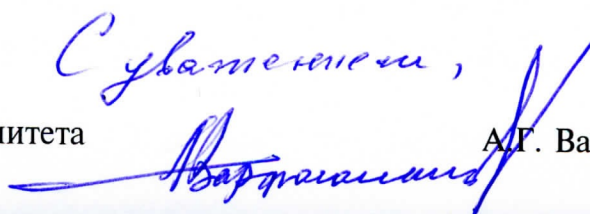 С уважением,
митета А.Г. Ва